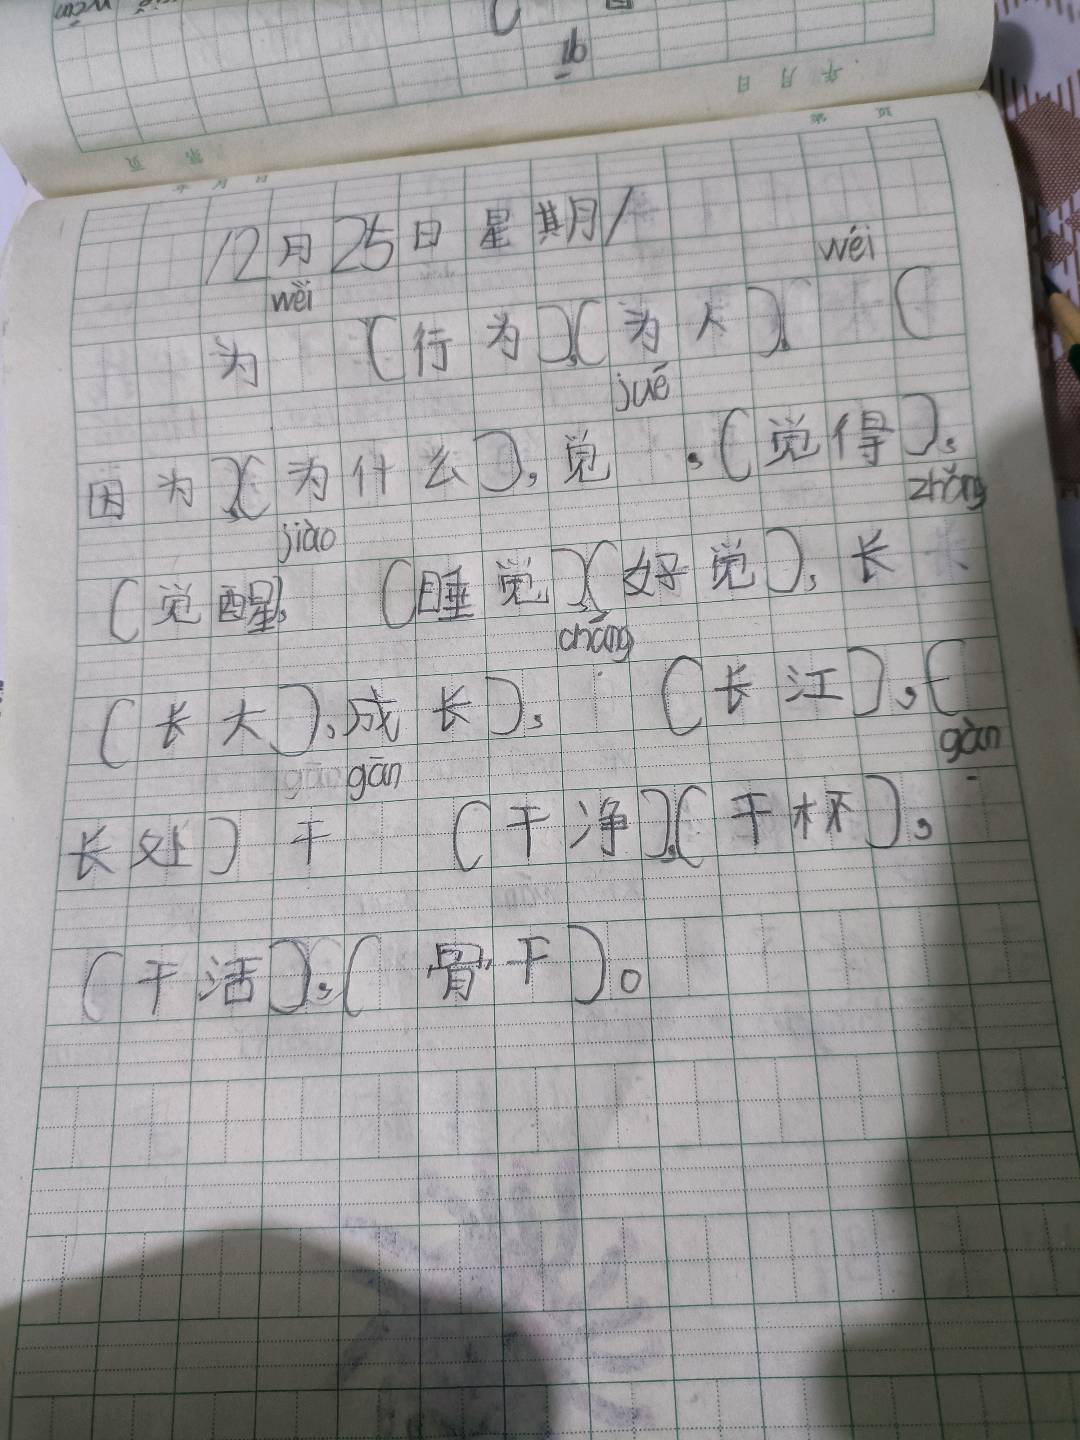 12月25日星期1
wěi wéi
为 (行为)、(为人)、 (
jué
因为)、(为什么),觉 、(觉得)、
jiào zhǎng
(觉醒、 (睡觉)、(好觉),长
cháng
(长大)、成长)、 (长江)、(
gān gàn
长处) 干 (干净)、(干杯)、
(干活)、(骨干)。